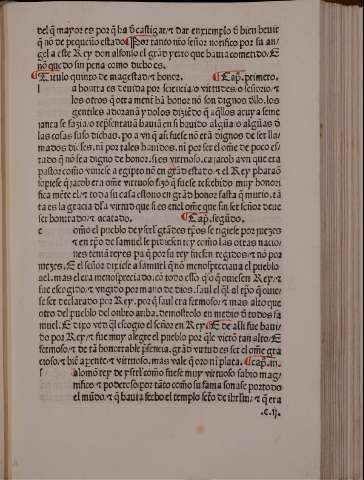 del q̃ mayor es por q̃ ha d̃ castigar. ⁊ dar enxemplo d̃ bien beuir
q̃ nõ de pequeño estado Por tanto nr̃o señor notifico por su an
gel a este Rey don alfonso el grãd yerro que hauia cometido. E
nõ quedo sin pena como dicho es.
Titulo quinto de magestad ⁊ honor. Cap̃. primero.
l a honrra es deuida por sciencia / o virtudes o señorio. ⁊
los otros q̃ otra menẽ hã honor nõ son dignos dllo. los
gentiles adorauã ydolos diziẽdo q̃ aq̃llos a cuya seme
iança se fazia. o rep̃sentauã hauiã en si hauido algũa / o algũas d̃
las cosas suso dichas. po a vn q̃ asi fuese nõ erã dignos de ser lla
mados dioses. ni por tales hauidos. ni por ser el om̃e de poco es
tado q̃ nõ sea digno de honor. si es virtuoso. ca jacob a vn que era
pastor como viniese a egipto nõ en grãd estado. ⁊ el Rey pharaõ
sopiese q̃ jacob era om̃e virtuoso fizo q̃ fuese rescebido muy honori
fica mẽte el. ⁊ toda su casa e fizolo en grãd honor fasta q̃ murio. tã
ta es la gracia d̃ la virtud que si es en el om̃e que sin ser señor deue
ser honrrado ⁊ acatado. Cap̃. segũdo.
c omo el pueblo de ysrł grãdes tp̃os se rigiese por juezes
⁊ en tp̃o de samuel le pidiesen rey como las otras nacio
nes teniã reyes pa q̃ por su rey fuesen regidos. ⁊ nõ por
juezes. E el señor dixiese a samuel q̃ nõ menospreciaua el pueblo
a el. mas el era menospreciado. cõ todo esso q̃so q̃ ouiesen Rey. ⁊
fue escogido. ⁊ vngido por mano de dios. saul el q̃l al tp̃o q̃ ouie
se ser declarado por Rey. por q̃ saul era fermoso. ⁊ mas alto que
otro del pueblo del onbro arriba. demostrolo en medio d̃ todos sa
muel. E dixo ved q̃l escogio el señor en Rey E de alli fue haui
do por Rey. ⁊ fue muy alegre el pueblo por q̃ le vierõ tan alto. E
fermoso. ⁊ de tã honorrable p̃sencia. grãd virtud es si el om̃e gra
cioso. ⁊ biẽ apente ⁊ virtuoso. mas vale q̃ oro ni plata. cap̃. iij.
s alomõ rey de ysrł como fuese muy virtuoso sabio mag
nifico. ⁊ poderoso por tãto como su fama sonase por todo
el mũdo. ⁊ q̃ hauia fecho el templo sc̃to de ihrl̃m. ⁊ q̃ era
.c.ij.